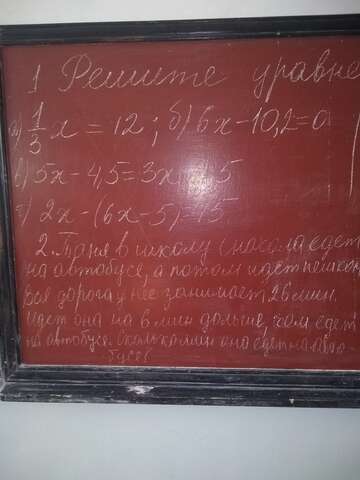 1 Решите уравне
а) 1/3 x = 12; б) 6x - 10,2 = 0
в) 5x - 4,5 = 3x 5
г) 2x - (6x - 5) = 45
2. Таня в школу сначала едет
на автобусе, а потом идет пешком
вся дорога у нее занимает 26 мин.
Идет она на 6 мин дольше, чем едет
на автобусе. Сколько мин она едет на авто-
бусе